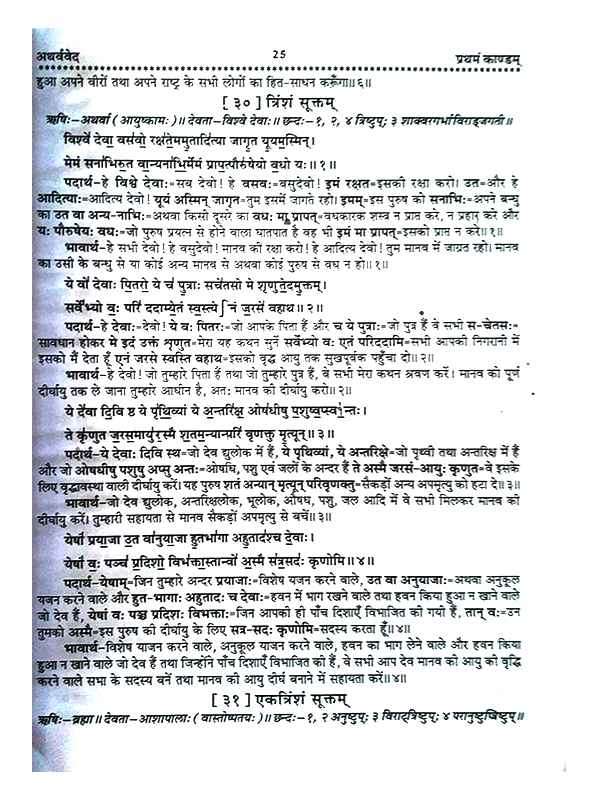 अथर्ववेद 25 प्रथमं काण्डम्
हुआ अपने वीरों तथा अपने राष्ट्र के सभी लोगों का हित-साधन करूँगा॥६॥
[ ३० ] त्रिंशं सूक्तम्
ऋषिः-अथर्वा ( आयुष्कामः )॥ देवता-विश्वे देवाः॥ छन्दः-१, २, ४ त्रिष्टुप्; ३ शाक्वरगर्भाविराड्जगती॥
विश्वे॑ देवा॒ वस॑वो॒ रक्ष॑ते॒ममु॒तादि॑त्या जागृ॒त यू॒यम॒स्मिन्।
मेमं सना॑भिरु॒त वा॒न्यना॑भि॒र्मेमं प्राप॒त्पौरु॑षेयो व॒धो यः॥१॥
पदार्थ-हे विश्वे देवाः=सब देवो! हे वसवः=वसुदेवो! इमं रक्षत=इसकी रक्षा करो। उत=और हे
आदित्याः=आदित्य देवो! यूयं अस्मिन् जागृत=तुम इसमें जागते रहो। इमम्=इस पुरुष को सनाभिः=अपने बन्धु
का उत वा अन्य-नाभिः=अथवा किसी दूसरे का वधः मा प्रापत्=वधकारक शस्त्र न प्राप्त करे, न प्रहार करे और
यः पौरुषेयः वधः=जो पुरुष प्रयत्न से होने वाला घातपात है वह भी इमं मा प्रापत्=इसको प्राप्त न करे॥१॥
भावार्थ-हे सभी देवो! हे वसुदेवो! मानव की रक्षा करो! हे आदित्य देवो! तुम मानव में जाग्रत रहो। मानव
का उसी के बन्धु से या कोई अन्य मानव से अथवा कोई पुरुष से वध न हो॥१॥
ये वो॑ देवाः पि॒तरो॒ ये च॑ पु॒त्राः सचे॑तसो मे शृणुते॒दमु॒क्तम्।
सर्वे॑भ्यो वः॒ परि॑ ददाम्ये॒तं स्व॒स्त्ये॒ऽनं ज॒रसे॑ वहाथ॥२॥
पदार्थ-हे देवाः=देवो! ये वः पितरः=जो आपके पिता हैं और च ये पुत्राः=जो पुत्र हैं वे सभी स-चेतसः=
सावधान होकर मे इदं उक्तं शृणुत=मेरा यह कथन सुनें सर्वेभ्यो वः एतं परिददामि=सभी आपकी निगरानी में
इसको मैं देता हूँ एनं जरसे स्वस्ति वहाथ=इसको वृद्ध आयु तक सुखपूर्वक पहुँचा दो॥२॥
भावार्थ-हे देवो! जो तुम्हारे पिता हैं तथा जो तुम्हारे पुत्र हैं, वे सभी मेरा कथन श्रवण करें। मानव को पूर्ण
दीर्घायु तक ले जाना तुम्हारे आधीन है, अतः मानव की दीर्घायु करो॥२॥
ये दे॑वा दि॒वि ष्ठ ये पृ॑थि॒व्यां ये अ॒न्तरि॑क्ष॒ ओष॑धीषु प॒शुष्व॒प्स्व१॒॑न्तः।
ते कृ॑णुत ज॒रस॒मायु॑र॒स्मै श॒तम॒न्यान्परि॑ वृणक्तु मृ॒त्यून्॥३॥
पदार्थ-ये देवाः दिवि स्थ=जो देव द्युलोक में हैं, ये पृथिव्यां, ये अन्तरिक्षे=जो पृथ्वी तथा अन्तरिक्ष में हैं
और जो ओषधीषु पशुषु अप्सु अन्तः=ओषधि, पशु एवं जलों के अन्दर हैं ते अस्मै जरसं-आयुः कृणुत=वे इसके
लिए वृद्धावस्था वाली दीर्घायु करें। यह पुरुष शतं अन्यान् मृत्यून् परिवृणक्तु=सैकड़ों अन्य अपमृत्यु को हटा दे॥३॥
भावार्थ-जो देव द्युलोक, अन्तरिक्षलोक, भूलोक, औषध, पशु, जल आदि में वे सभी मिलकर मानव की
दीर्घायु करें। तुम्हारी सहायता से मानव सैकड़ों अपमृत्यु से बचें॥३॥
येषां॑ प्रया॒जा उ॒त वा॑नुया॒जा हु॒तभा॑गा अहु॒ताद॑श्च दे॒वाः।
येषां॑ वः॒ पञ्च॑ प्र॒दिशो॒ विभ॑क्ता॒स्तान्वो॑ अ॒स्मै स॑त्र॒सदः॑ कृणोमि॥४॥
पदार्थ-येषाम्=जिन तुम्हारे अन्दर प्रयाजाः=विशेष यजन करने वाले, उत वा अनुयाजाः=अथवा अनुकूल
यजन करने वाले और हुत-भागाः अहुतादः च देवाः=हवन में भाग रखने वाले तथा हवन किया हुआ न खाने वाले
जो देव हैं, येषां वः पञ्च प्रदिशः विभक्ताः=जिन आपकी ही पाँच दिशाएँ विभाजित की गयी हैं, तान् वः=उन
तुमको अस्मै=इस पुरुष की दीर्घायु के लिए सत्र-सदः कृणोमि=सदस्य करता हूँ॥४॥
भावार्थ-विशेष याजन करने वाले, अनुकूल याजन करने वाले, हवन का भाग लेने वाले और हवन किया
हुआ न खाने वाले जो देव हैं तथा जिन्होंने पाँच दिशाएँ विभाजित की हैं, वे सभी आप देव मानव की आयु की वृद्धि
करने वाले सभा के सदस्य बनें तथा मानव की आयु दीर्घ बनाने में सहायता करें॥४॥
[ ३१ ] एकत्रिंशं सूक्तम्
ऋषिः-ब्रह्मा॥ देवता-आशापालाः ( वास्तोष्पतयः )॥ छन्दः-१, २ अनुष्टुप्; ३ विराट्त्रिष्टुप्; ४ परानुष्टुप्त्रिष्टुप्॥